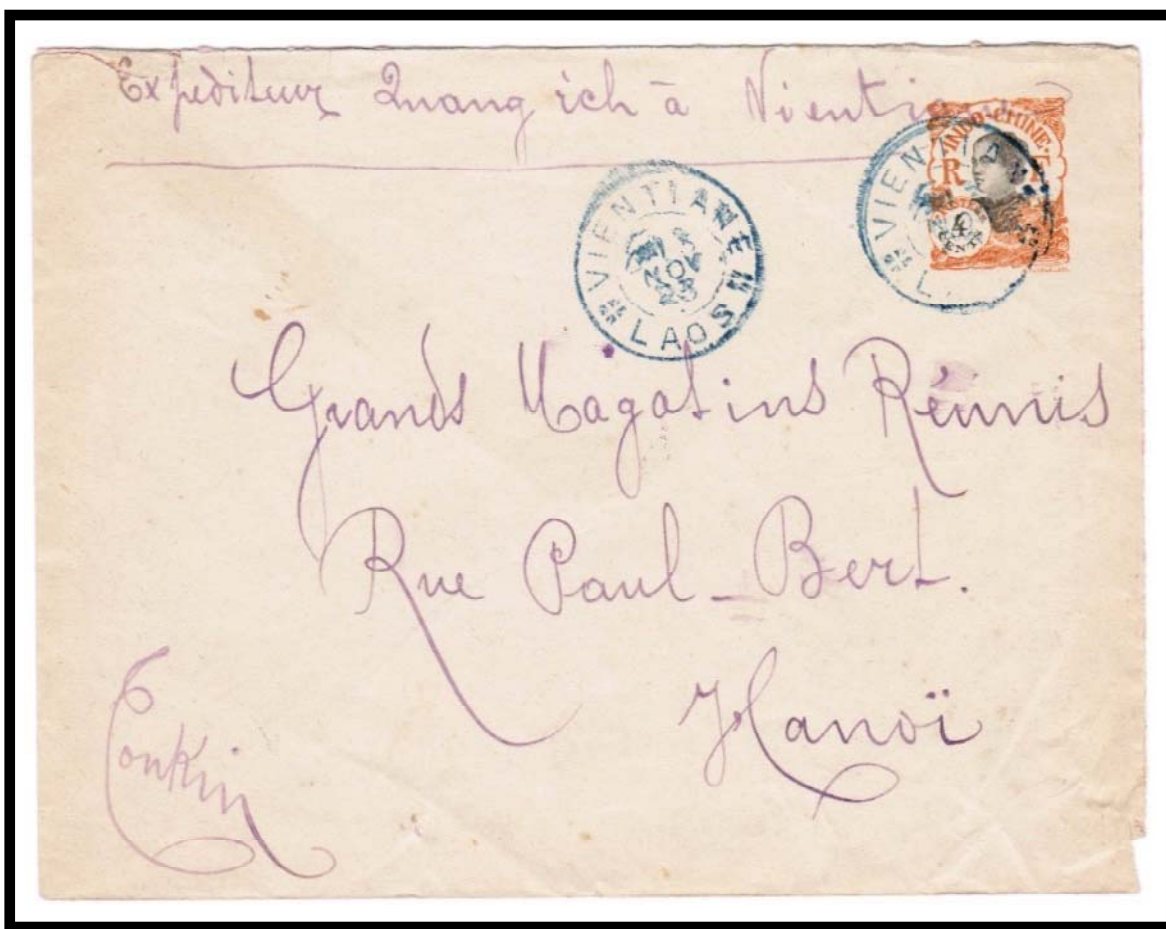 Expediteur Quang ich à Vientiane
VIENTIANE
NOV
23
LAOS
VIENTIAN
L
INDO-CHINE
R F
4
CENTS
Grands Magasins Réunis
Rue Paul-Bert.
Hanoï
Tonkin